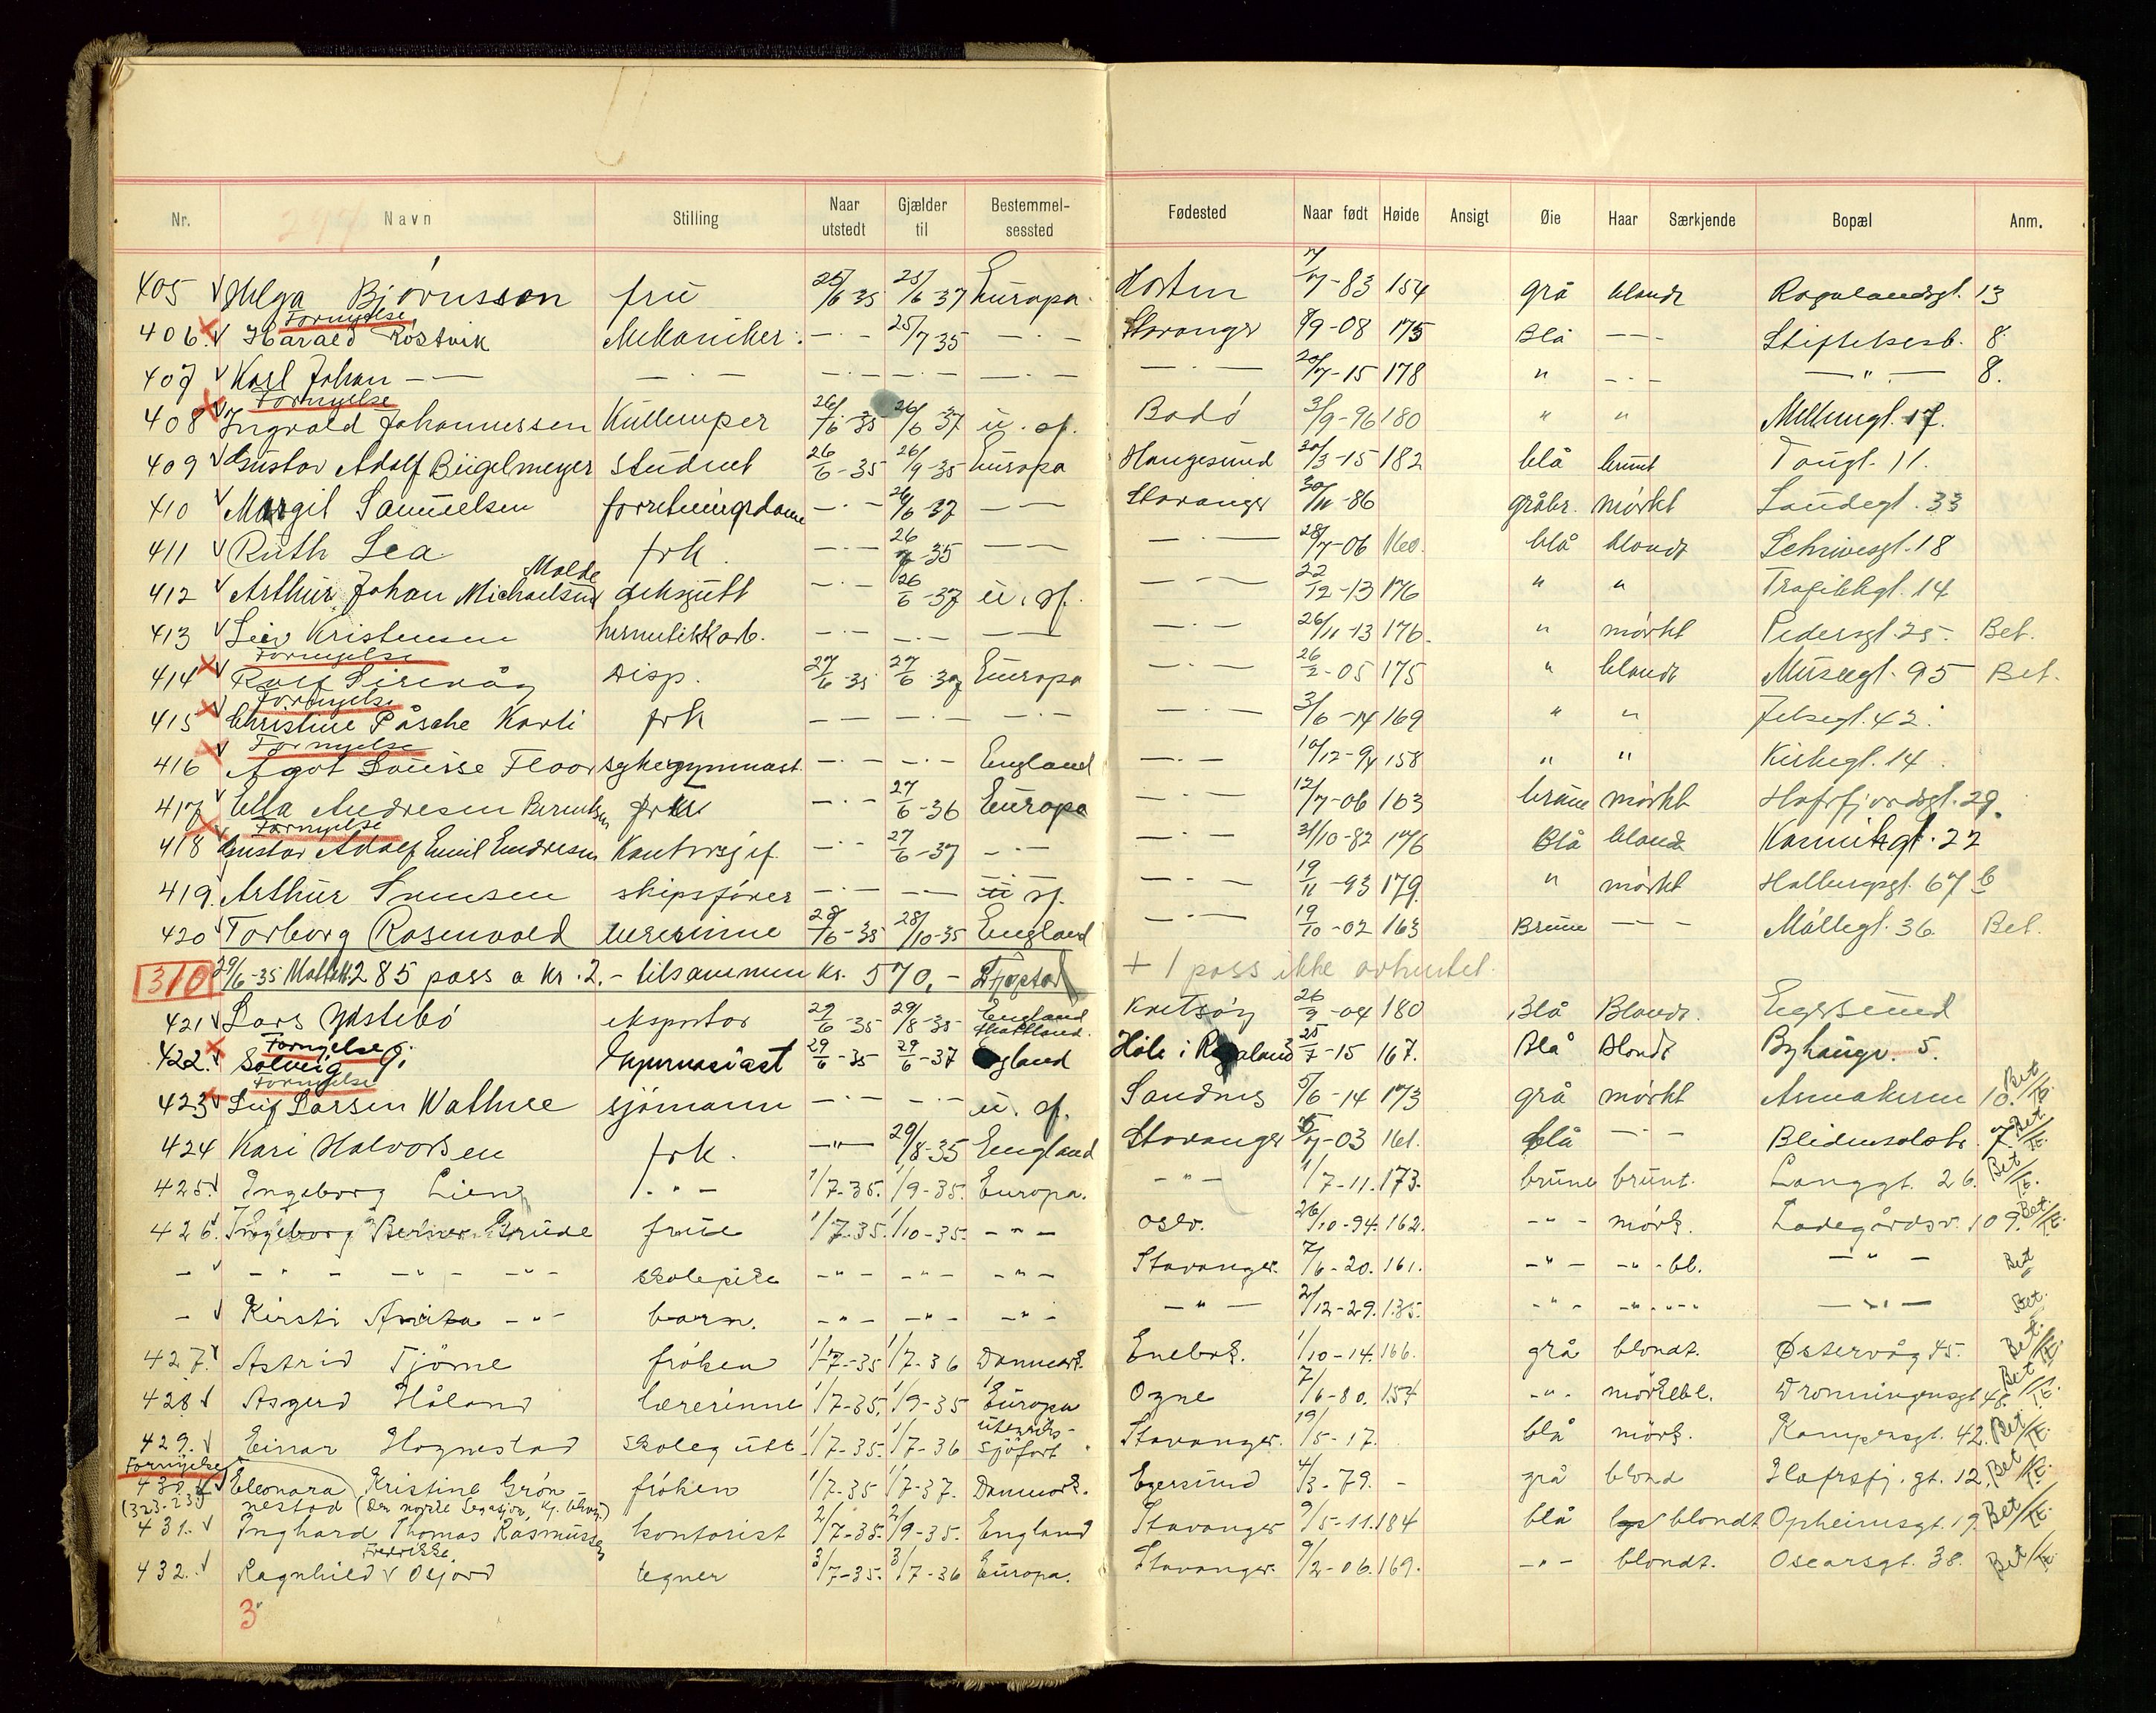 Nr. Navn Stilling Naar utstedt Gjælder til Bestemmel-sessted Fødested Naar født Høide Ansigt Øie Haar Særkjende Bopæl Anm.
405 √ Helga Bjørnsson fru 25/6 35 25/6 37 Europa Horten 7/7-83 154 grå blondt Rogalandsgt. 13
Fornyelse
406. √ Harald Røstvik Mekaniker - · - 25/7 35 - · - Stavanger 8/9-08 175 Blå - - - 8.
407 √ Karl Johan - - - · - - · - - · - - · - - · - 20/7-15 178 " - · - - " - 8.
Fornyelse
408 √ Ingvald Johannessen 26/6-35 26/6 37 u. sf. Bodø 3/9-96 180 " " 17.
409 √ Gustav Adolf student 26/6-35 26/9-35 Europa Haugesund 20/3-15 182 blå brunt Tangt. 11.
410 √ Margit Samuelsen forretningsdame - · - 26/6 37 - - Stavanger 30/11-86 gråbr. mørkt Sandegt. 33
411 √ Ruth Lea frk. - · - 26 35 - - - · - 28/7-06 160. blå blondt 18
Molde
412 √ Arthur Johan Michaelsen - · - 26/6-37 u. sf. - · - 22/12-13 176 " " Trafikkgt. 14
413 √ Leiv Kristensen hermetikkarb. - · - - · - - - - · - 26/11-13 176. " mørkt Pedersgt. 25. Bet.
Fornyelse
414 √ Rolf Sirevåg Disp. 27/6-35 27/6-37 Europa - · - 26/2-05 175 " blondt Museegt. 95 Bet.
Fornyelse
415 √ Christine Påsche frk - - - · - - · - - · - 3/6-14 169 " " Jelsegt. 42.
Fornyelse
416 √ Agot Louise Floor sykegymnast. - · - - · - England - · - 10/12 158 " " Kirkegt. 14.
417 √ Ella Andresen Berentsen - · - 27/6-36 Europa - · - 12/7-06 163 brune mørkt Hafrsfjordsgt. 29.
Fornyelse
418 Gustav Adolf Emil Endresen Kontorsjef. - · - 27/6-37 - · - - · - 31/10-82 176 Blå blondt 22
419. Arthur skipsfører - · - - - u sf. - · - 19/11-93 179. " mørkt Holbergsgt. 67 b
420 √ Torborg Rosenvold lærerinne 28/6-35 28/10-35 England - · - 19/10-02 163 Brune - - - Møllegt. 36. Bet.
310 29/6-35 285 pass a kr. 2.- tilsammen kr. 570,- + 1 pass ikke avhentet.
421 √ Lars Ystebø eksportør 29/6-35 29/8-35 England Skottland. Kvitsøy 26/9-04 180 Blå Blondt. Egersund
Fornyelse
422. √ Solveig gymnasiast 29/6-35 29/6-37 England Høle i Rogaland 25/7-15 167. Blå Blondt Byhaugv. 5.
Fornyelse
423 √ Leif Larsen Wathne sjömann - · - - · - u. sf. Sandnes 5/6-14 173 grå mørkt 10. Bet
424 Kari Halvorsen frk. - " - 29/8-35 England Stavanger 7-03 161. blå - · - 7. Bet.
425. √ Ingeborg Lien - " - 1/7-35. 1/9-35. Europa. - " - 1/7-11. 173. brune brunt. Langgt. 26. Bet
426. √ Ingeborg Berner Grude frue 1/7-35. 1/10-35. - " - Oslo. 26/10-94. 162. - " - mörk. Ladegårdsv. 109. Bet.
- √ - " - - " - - " - skolepike - " - - " - - " - Stavanger. 7/6-20. 161. - " - - " - bl. - " - Bet
- √ Kirsti Anita - " - barn. - " - - " - - " - - " - 2/12-29. 135. - " - - " - " - - " - Bet.
427. √ Astrid Tjörne fröken 1/7-35 1/7-36 Danmark. Enebak. 1/10-14. 166. grå blondt. Østervåg 45. Bet.
428 √ Asgerd Håland lærerinne 1/7-35. 1/9-35 Europa Ogne 7/6-80. 157 - " - mörkebl. Dronningensgt. 48. Bet
429. √ Einar Hognestad skolegutt 1/7-35. 1/7-36 utenriks-sjöfart Stavanger. 19/5-17. blå mörk. Kampensgt. 42. Bet
Fornyelse
430. √ Eleonora Kristine Grön- fröken 1/7-35 1/7-37. Danmark. Egersund 4/3-79. - grå blond Hafrsfj.gt. 12. Bet
(323-235) nestad (Den norske Legasjon, Kj.havn)
431. √ Inghard Thomas Rasmussen kontorist 2/7-35. 2/9-35. England Stavanger 9/5-11. 184 blå blondt Opheimsgt. 19. Bet
Fredrikke
432. √ Ragnhild √ Osjord tegner 3/7-35. 3/7-36 Europa. Stavanger. 9/2-06. 169. - " - blondt. Oscarsgt. 38. Bet
3